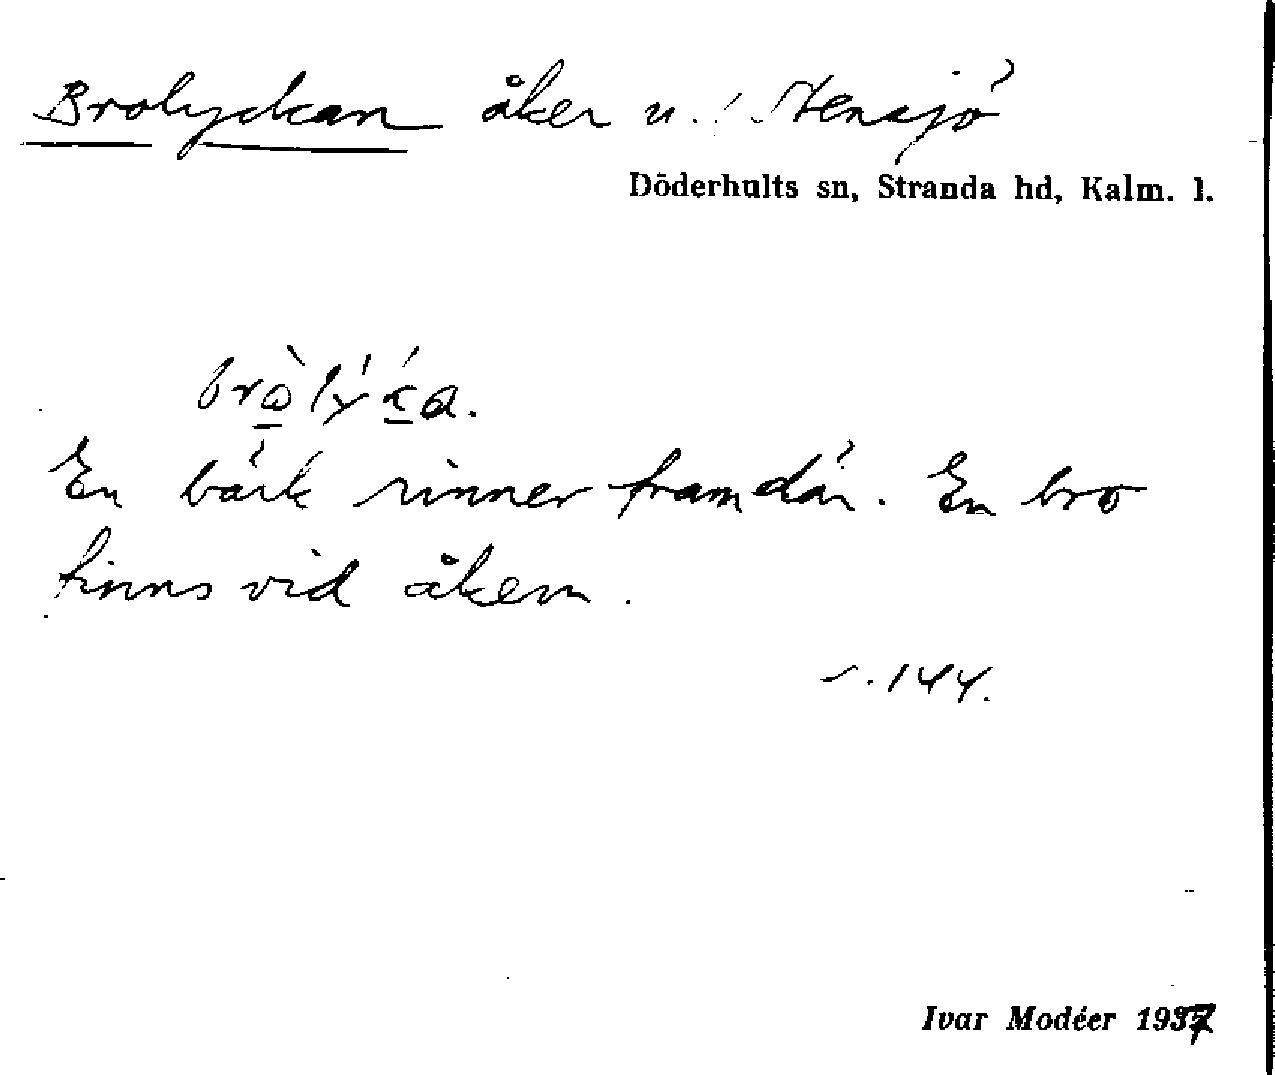 Brolyckan åker u. Stensjö
Döderhults sn, Stranda hd, Kalm. l.
En bäck rinner fram där. En bro
finns vid åkern.
s. 144.
Ivar Modéer 1937